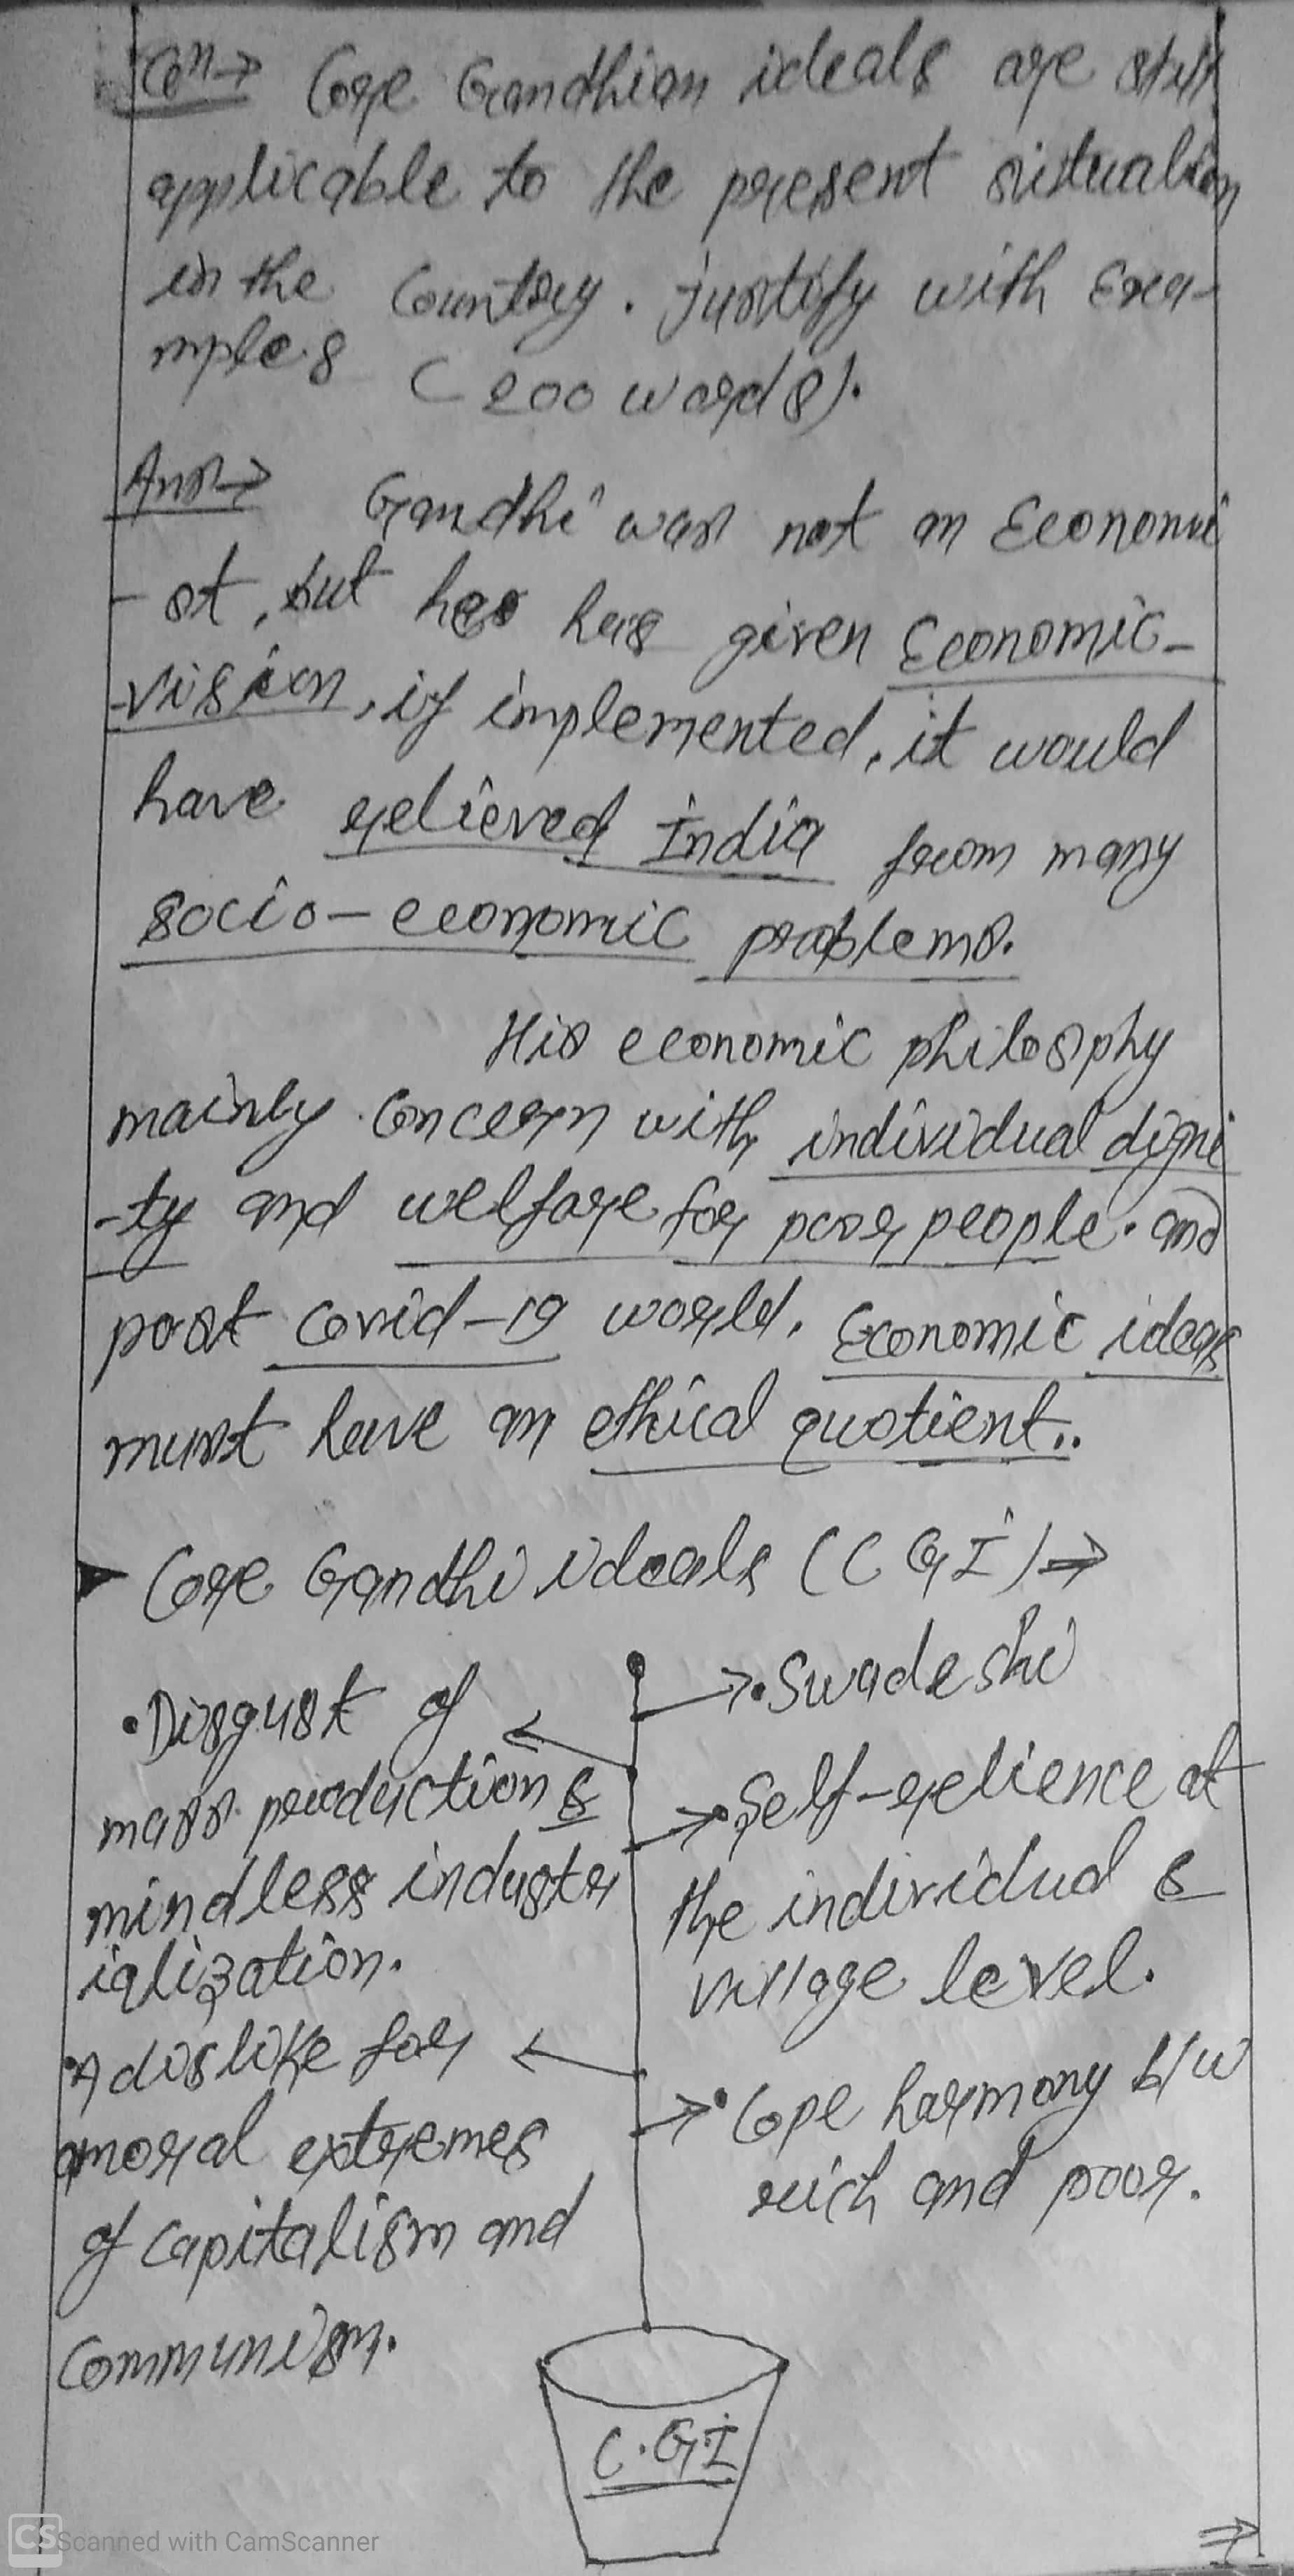 Qn→ Core Gandhian ideals are still
applicable to the present situation
in the Country. Justify with Exa-
mples (200 words).
Ans→ Gandhi was not an Economi
-st, but has given Economic-
-vision, if implemented, it would
have relieved India from many
socio-economic problems.
His economic philosphy
mainly concern with individual digni
-ty and welfare for poor people. and
post covid-19 world. Economic ideas
must have an ethical quotient..
Core Gandhi ideals (CGI)→
• Disgust of
mass production &
mindless industr
ialization.
• A dislike for
amoral extremes
of capitalism and
Communism.
• Swadeshi
• Self-relience at
the individual &
village level.
• Cope harmony b/w
rich and poor.
C.G.I
CS Scanned with CamScanner